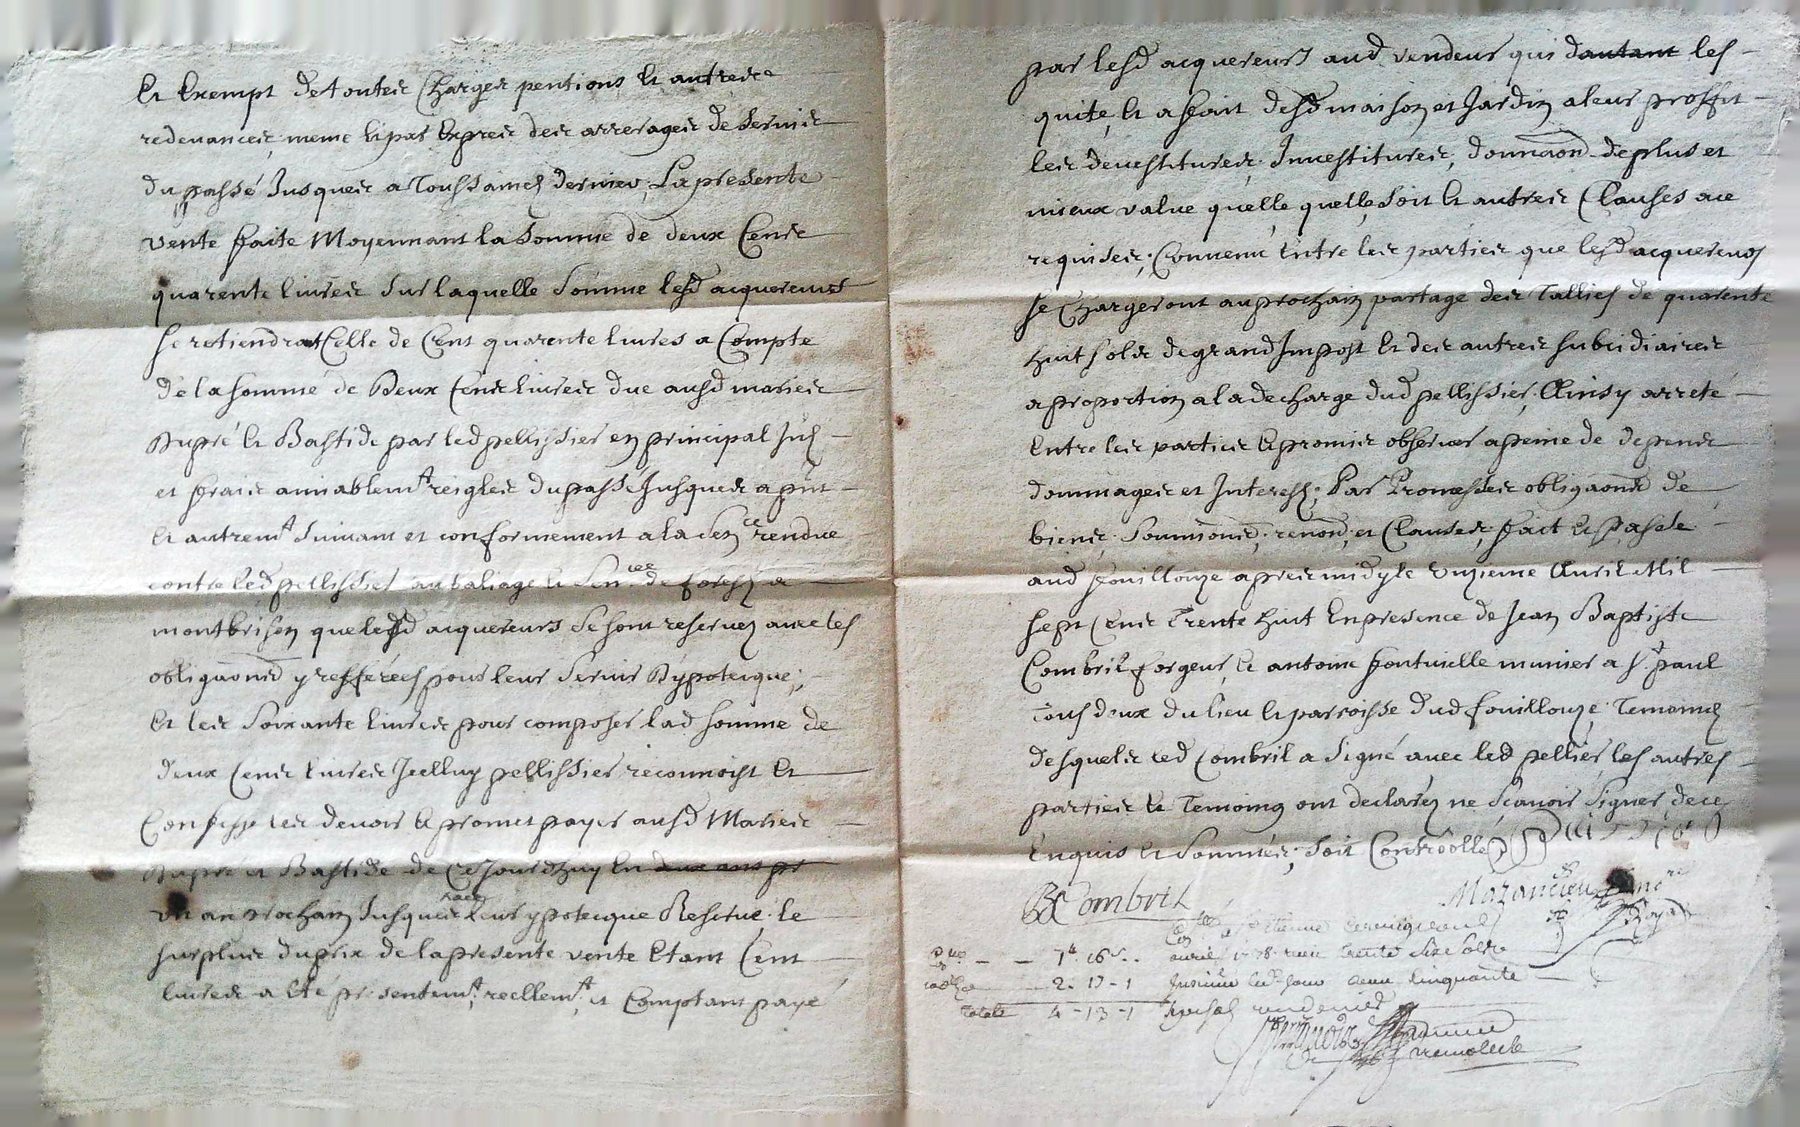 Et Exempt de toutes Charges pentions Et autres
redevances, meme Expres des arrerages de servis
du passé Jusques a Toussainct dernier, La presente
vente faite Moyennant la somme de deux Cents
quarente livres sur laquelle somme lesd acquereurs
se retiendront Celle de Cent quarente livres a Compte
de la somme de Deux Cents livres due ausd mariés
Dupré Et Bastide par led pellissier en principal
et frais amiablemt reigles du passé Jusques a pnt
Et autremt suivant et conformement a la Sence rendue
contre led pellissier au baliage Et Sencée de forest a
montbrison que lesd acquereurs se sont reservez avec les
obligaons y refferées pour leur servir D'ypoteque;
Et les soixante livres pour composer lad somme de
deux Cents livres Icelluy pellissier reconnoist Et
Confesse les devoir Et promet payer ausd Mariés
Dupré et Bastide de Cejourdhuy En deux ans pr
un an prochain Jusques leur ypoteque Reservé; le
surplus du prix de la presente vente Etant Cent
livres a Eté presentemt, reellemt, et Comptant payé
par lesd acquereurs aud vendeur qui dautant les
quite, Et a fait desd maison et Jardin a leur proffit
les devestitures, Investitures, donnaon de plus et
mieux value quelle quelle soit Et autres Clauses a ce
requises; Convenu Entre les parties que lesd acquereurs
se Chargeront au prochain partage des Tallies de quarente
huit sols de grand Impost Et des autres subcidiaires
a proportion a la decharge dud pellissier, Ainsy arreté
Entre les parties Et promis observer a peine de depens
dommages et Interest; Par Promesses obligaons de
biens, soumions, renons, et Clauses, fait Et passé
aud fouillouze apres midy le unzieme Avril Mil
sept Cents Trente huit En presence de Jean Baptiste
Combril forgeur, Et antoine fontvielle munier a St paul
Tous deux du lieu Et parroisse dud fouillouze Temoins
desquels led Combril a signé avec led pellier, les autres
parties Et Temoins ont declarez ne scavoir signer de ce
Enquis Et sommés; soit Controollé
B Combril
Mazancieu
Royal
7 16
avril 1738 trente six sols
2 - 17 - 1
cinquante
Totale 4 - 13 - 1